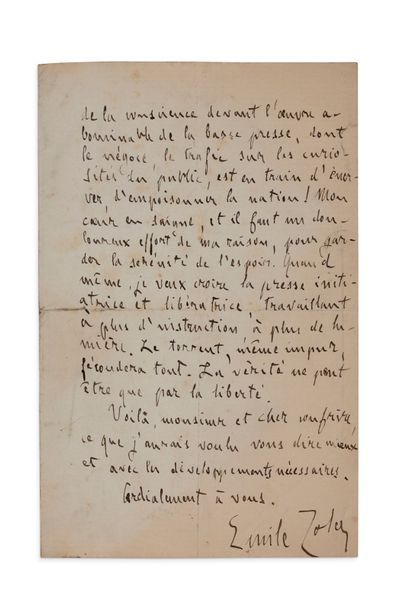 de la conscience devant l'œuvre a-
bominable de la basse presse, dont
le négoce, le trafic sur les curio-
sités du public, est en train d'éner-
ver, d'empoisonner la nation! Mon
cœur en saigne, et il faut un dou-
loureux effort de ma raison, pour gar-
der la sérénité de l'espoir. Quand
même, je veux croire la presse initi-
atrice et libératrice, travaillant
à plus d'instruction à plus de lu-
mière. Le torrent, même impur,
fécondera tout. La vérité ne peut
être que par la liberté.
Voilà, monsieur et cher confrère,
ce que j'aurais voulu vous dire mieux
et avec les développements nécessaires.
Cordialement à vous.
Emile Zola